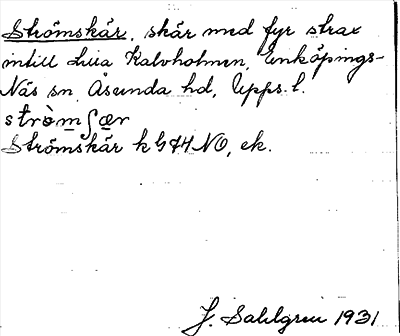 Strömskär, skär med fyr strax
intill Lilla Kalvholmen, Enköpings-
Näs sn, Åsunda hd, Upps. l.
strö̀mʃær
Strömskär k 974 NO, ek.
J. Sahlgren 1931